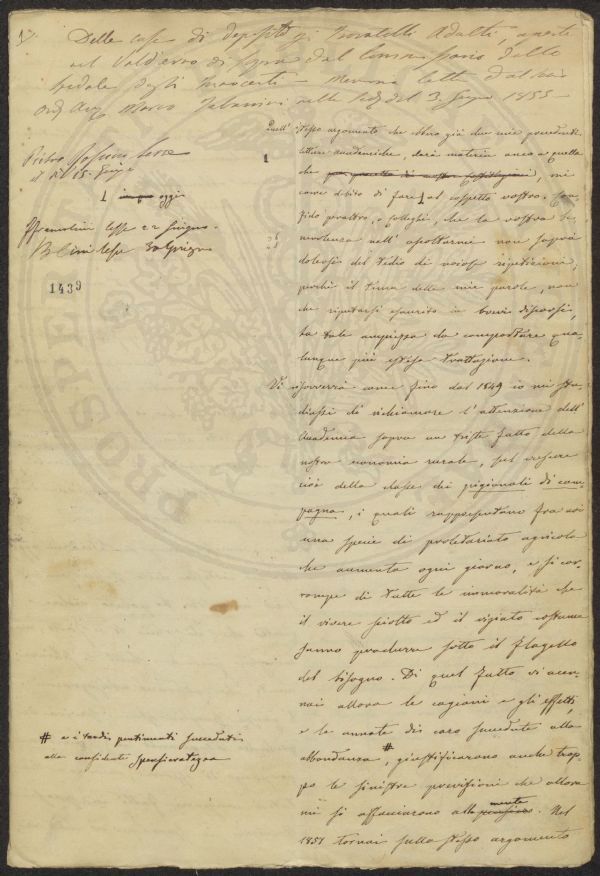 Delle case di deposito pei Trovatelli Adulti, aperte
nel Valdarno di sopra dal Commissario dello
Spedale degli Innocenti — Memoria letta dal
Marco Tabarrini nella del 3. Giugno 1855 —
il dì 15. Giugno
oggi
lesse 22 Giugno.
lesse 30 Giugno
1439
Quell' stesso argomento che ebbero già due mie precedenti
1
letture accademiche, darà materia anco a quella
che mi
corre debito di fare al cospetto vostro. Con-
fido peraltro, o Colleghi, che la vostra be-
nevolenza nell' ascoltarmi non saprà
dolersi del tedio di noiose ripetizioni;
perchè il tema delle mie parole, non
che reputarsi esaurito in brevi discorsi,
ha tale ampiezza da comportare qua-
lunque più estesa trattazione.
Vi sovverrà come fino dal 1849 io mi stu-
diassi di richiamare l'attenzione dell'
Accademia sopra un triste fatto della
nostra economia rurale, sul crescere
cioè della classe dei pigionali di cam-
pagna, i quali rappresentano fra noi
una specie di proletariato agricola
che aumenta ogni giorno, e si cor-
rompe di tutte le immoralità che
il vivere sciolto ed il viziato costume
sanno produrre sotto il flagello
del bisogno. Di quel fatto vi accen-
nai allora le cagioni e gli effetti,
e le annate di caro succedute alla
abbondanza #, giustificarono anche trop-
po le sinistre previsioni che allora
mi si affacciarono alla mente. Nel
1851 tornai sullo stesso argomento
# e i tardi pentimenti succeduti
alla confidente spensieratezza
PROSPE